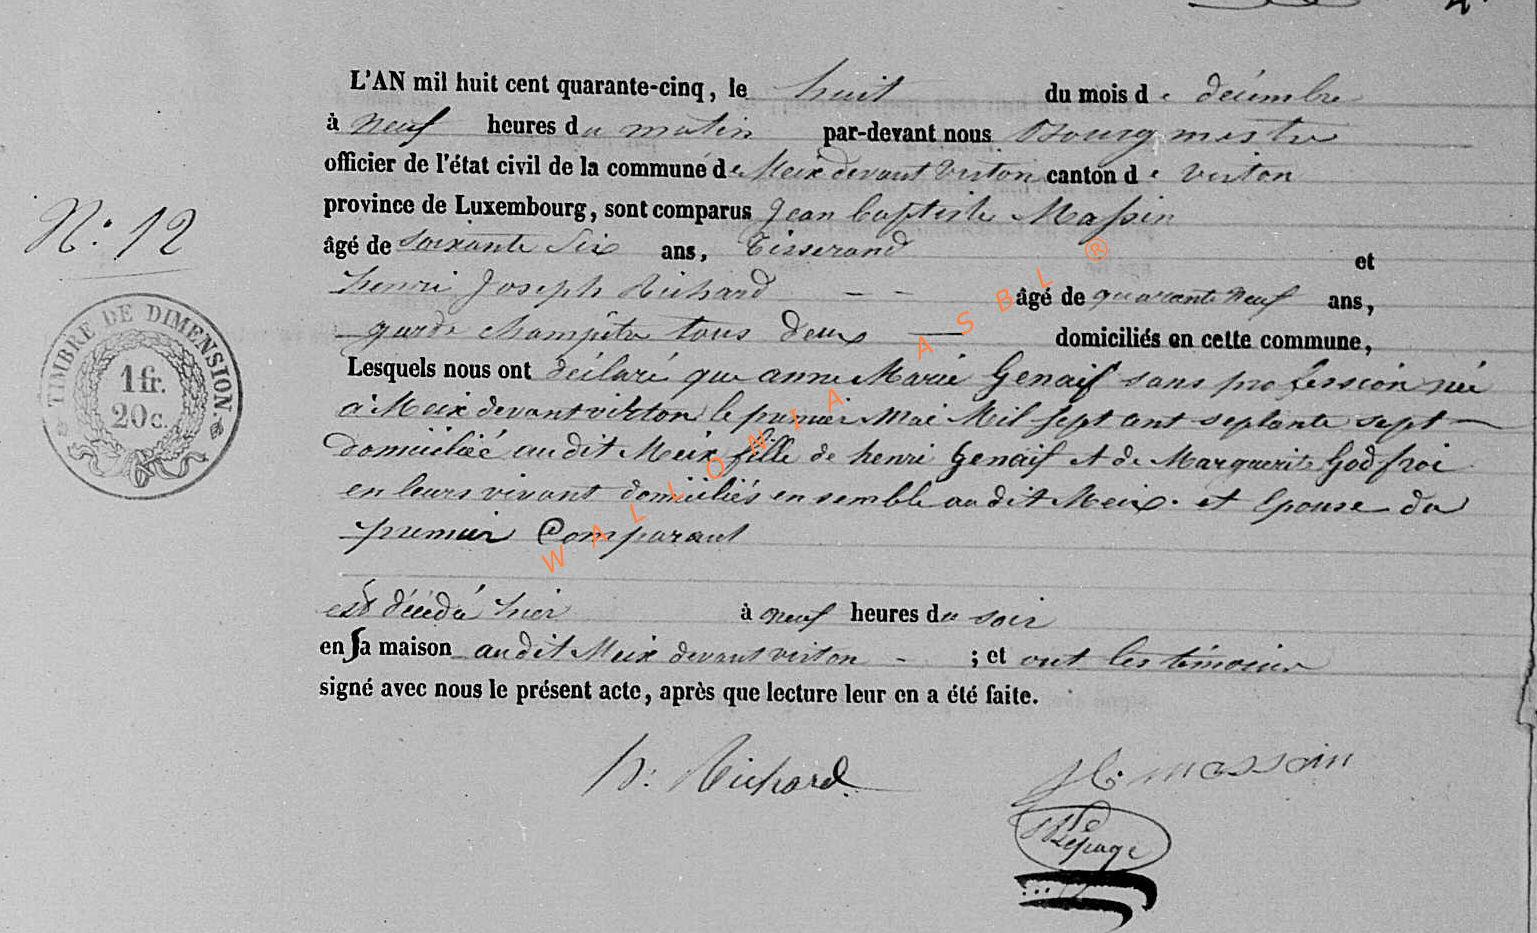 L'AN mil huit cent quarante-cinq, le huit du mois de décembre
à neuf heures du matin par-devant nous Bourgmestre
officier de l'état civil de la commune de Meix devant virton canton de virton
province de Luxembourg, sont comparus Jean baptiste Massin
N: 12
âgé de soixante six ans, Tisserand et
henri Joseph Richard âgé de quarante neuf ans,
garde champêtre tous deux domiciliés en cette commune,
Lesquels nous ont déclaré que anne Marie Genaif sans profession née
à Meix devant virton le premier Mai Mil sept cent septante sept
domiciliée audit Meix fille de henri Genaif et de Marguerite Godfroi
en leurs vivant domiciliés ensemble audit Meix. et Epouse du
premier Comparant
TIMBRE DE DIMENSION
1 fr.
20 c.
WALLONIA ASBL ®
est décédé hier à neuf heures du soir
en sa maison audit Meix devant virton ; et ont les témoins
signé avec nous le présent acte, après que lecture leur en a été faite.
h: Richard
massoin
Lepage